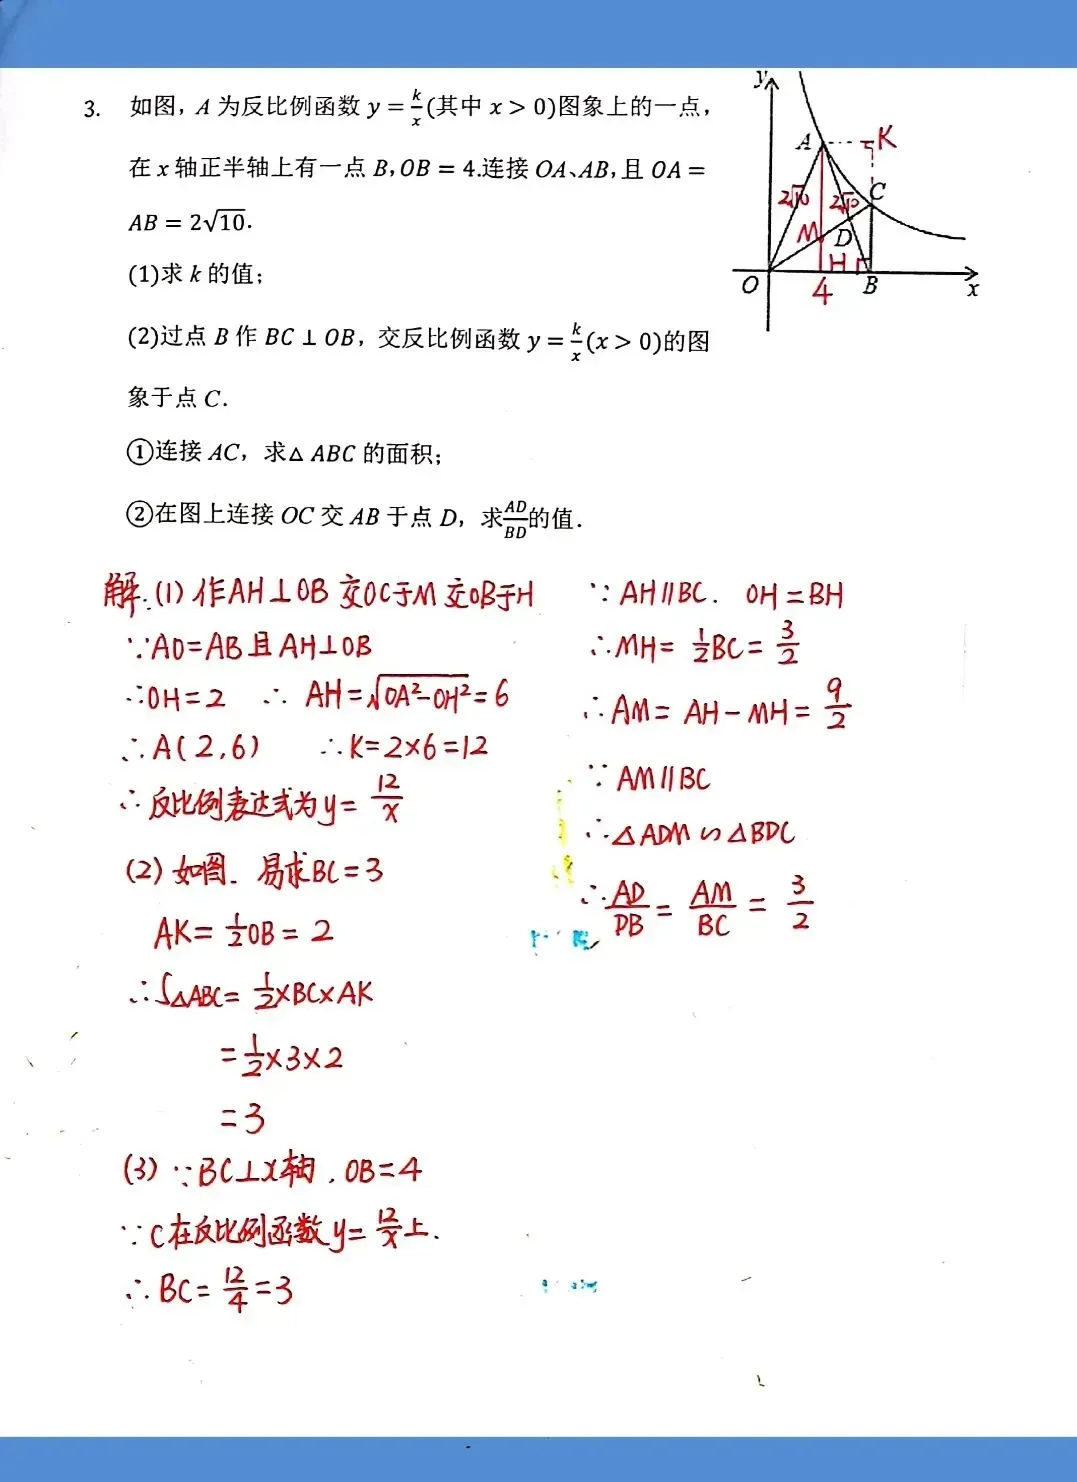 3. 如图，A 为反比例函数 y = k/x (其中 x > 0)图象上的一点，
在 x 轴正半轴上有一点 B, OB = 4.连接 OA、AB, 且 OA =
AB = 2√10.
(1)求 k 的值；
(2)过点 B 作 BC ⊥ OB，交反比例函数 y = k/x (x > 0)的图
象于点 C.
①连接 AC，求△ ABC 的面积；
②在图上连接 OC 交 AB 于点 D，求AD/BD的值.
y
A
K
C
2√10
2√10
M
D
H
O
4
B
x
解.(1) 作AH⊥OB 交OC于M 交OB于H
∵AO=AB且AH⊥OB
∴OH=2 ∴ AH=√OA²-OH²=6
∴A(2,6) ∴K=2×6=12
∴反比例表达式为y=12/x
(2)如图. 易求BC=3
AK=1/2OB=2
∴S△ABC=1/2×BC×AK
=1/2×3×2
=3
(3)∵BC⊥X轴, OB=4
∵C在反比例函数y=12/x上.
∴BC=12/4=3
∵AH∥BC. OH=BH
∴MH=1/2BC=3/2
∴AM=AH-MH=9/2
∵AM∥BC
∴△ADM∽△BDC
∴AD/DB=AM/BC=3/2